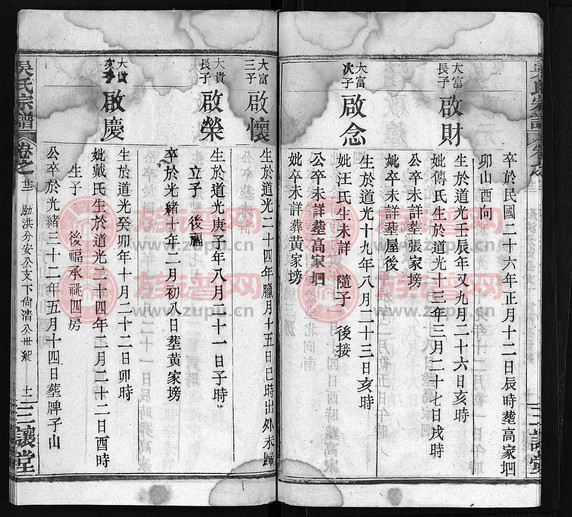 卒於民國二十六年正月十二日辰時葬高家垇
卯山酉向
大富
長子
啟財
生於道光壬辰年又九月二十六日亥時
妣傅氏生於道光十三年三月二十七日戌時
公卒未詳葬張家塝
妣卒未詳葬屋後
大富
次子
啟念
生於道光十九年八月二十三日亥時
妣汪氏生未詳 隨子 後接
公卒未詳葬高家垇
妣卒未詳葬黄家塝
大富
三子
啟懷
生於道光二十四年臘月十五日巳時出外未歸
大貴
長子
啟榮
生於道光庚子年八月二十一日子時
立子 後福
卒於光緒十年二月初八日葬黄家塝
大貴
次子
啟慶
生於道光癸卯年十月二十二日卯時
妣戴氏生於道光二十四年二月二十二日酉時
生子
後福承祧四房
公卒於光緒三十二年五月十四日葬牌子山
吳氏宗譜
卷之
勵洪分安公支下尙清公世紀
十一
三讓堂
族譜网
www.zupu.cn
族譜网
www.zupu.cn
族譜网
www.zupu.cn
族譜网
www.zupu.cn